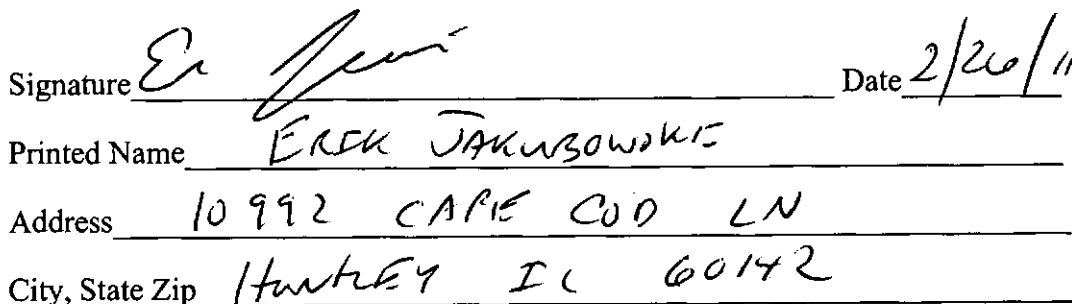 Signature Date 2/26/11
Printed Name ERIK JAKUBOWSKI
Address 10992 CAPE COD LN
City, State Zip HUNTLEY IL 60142